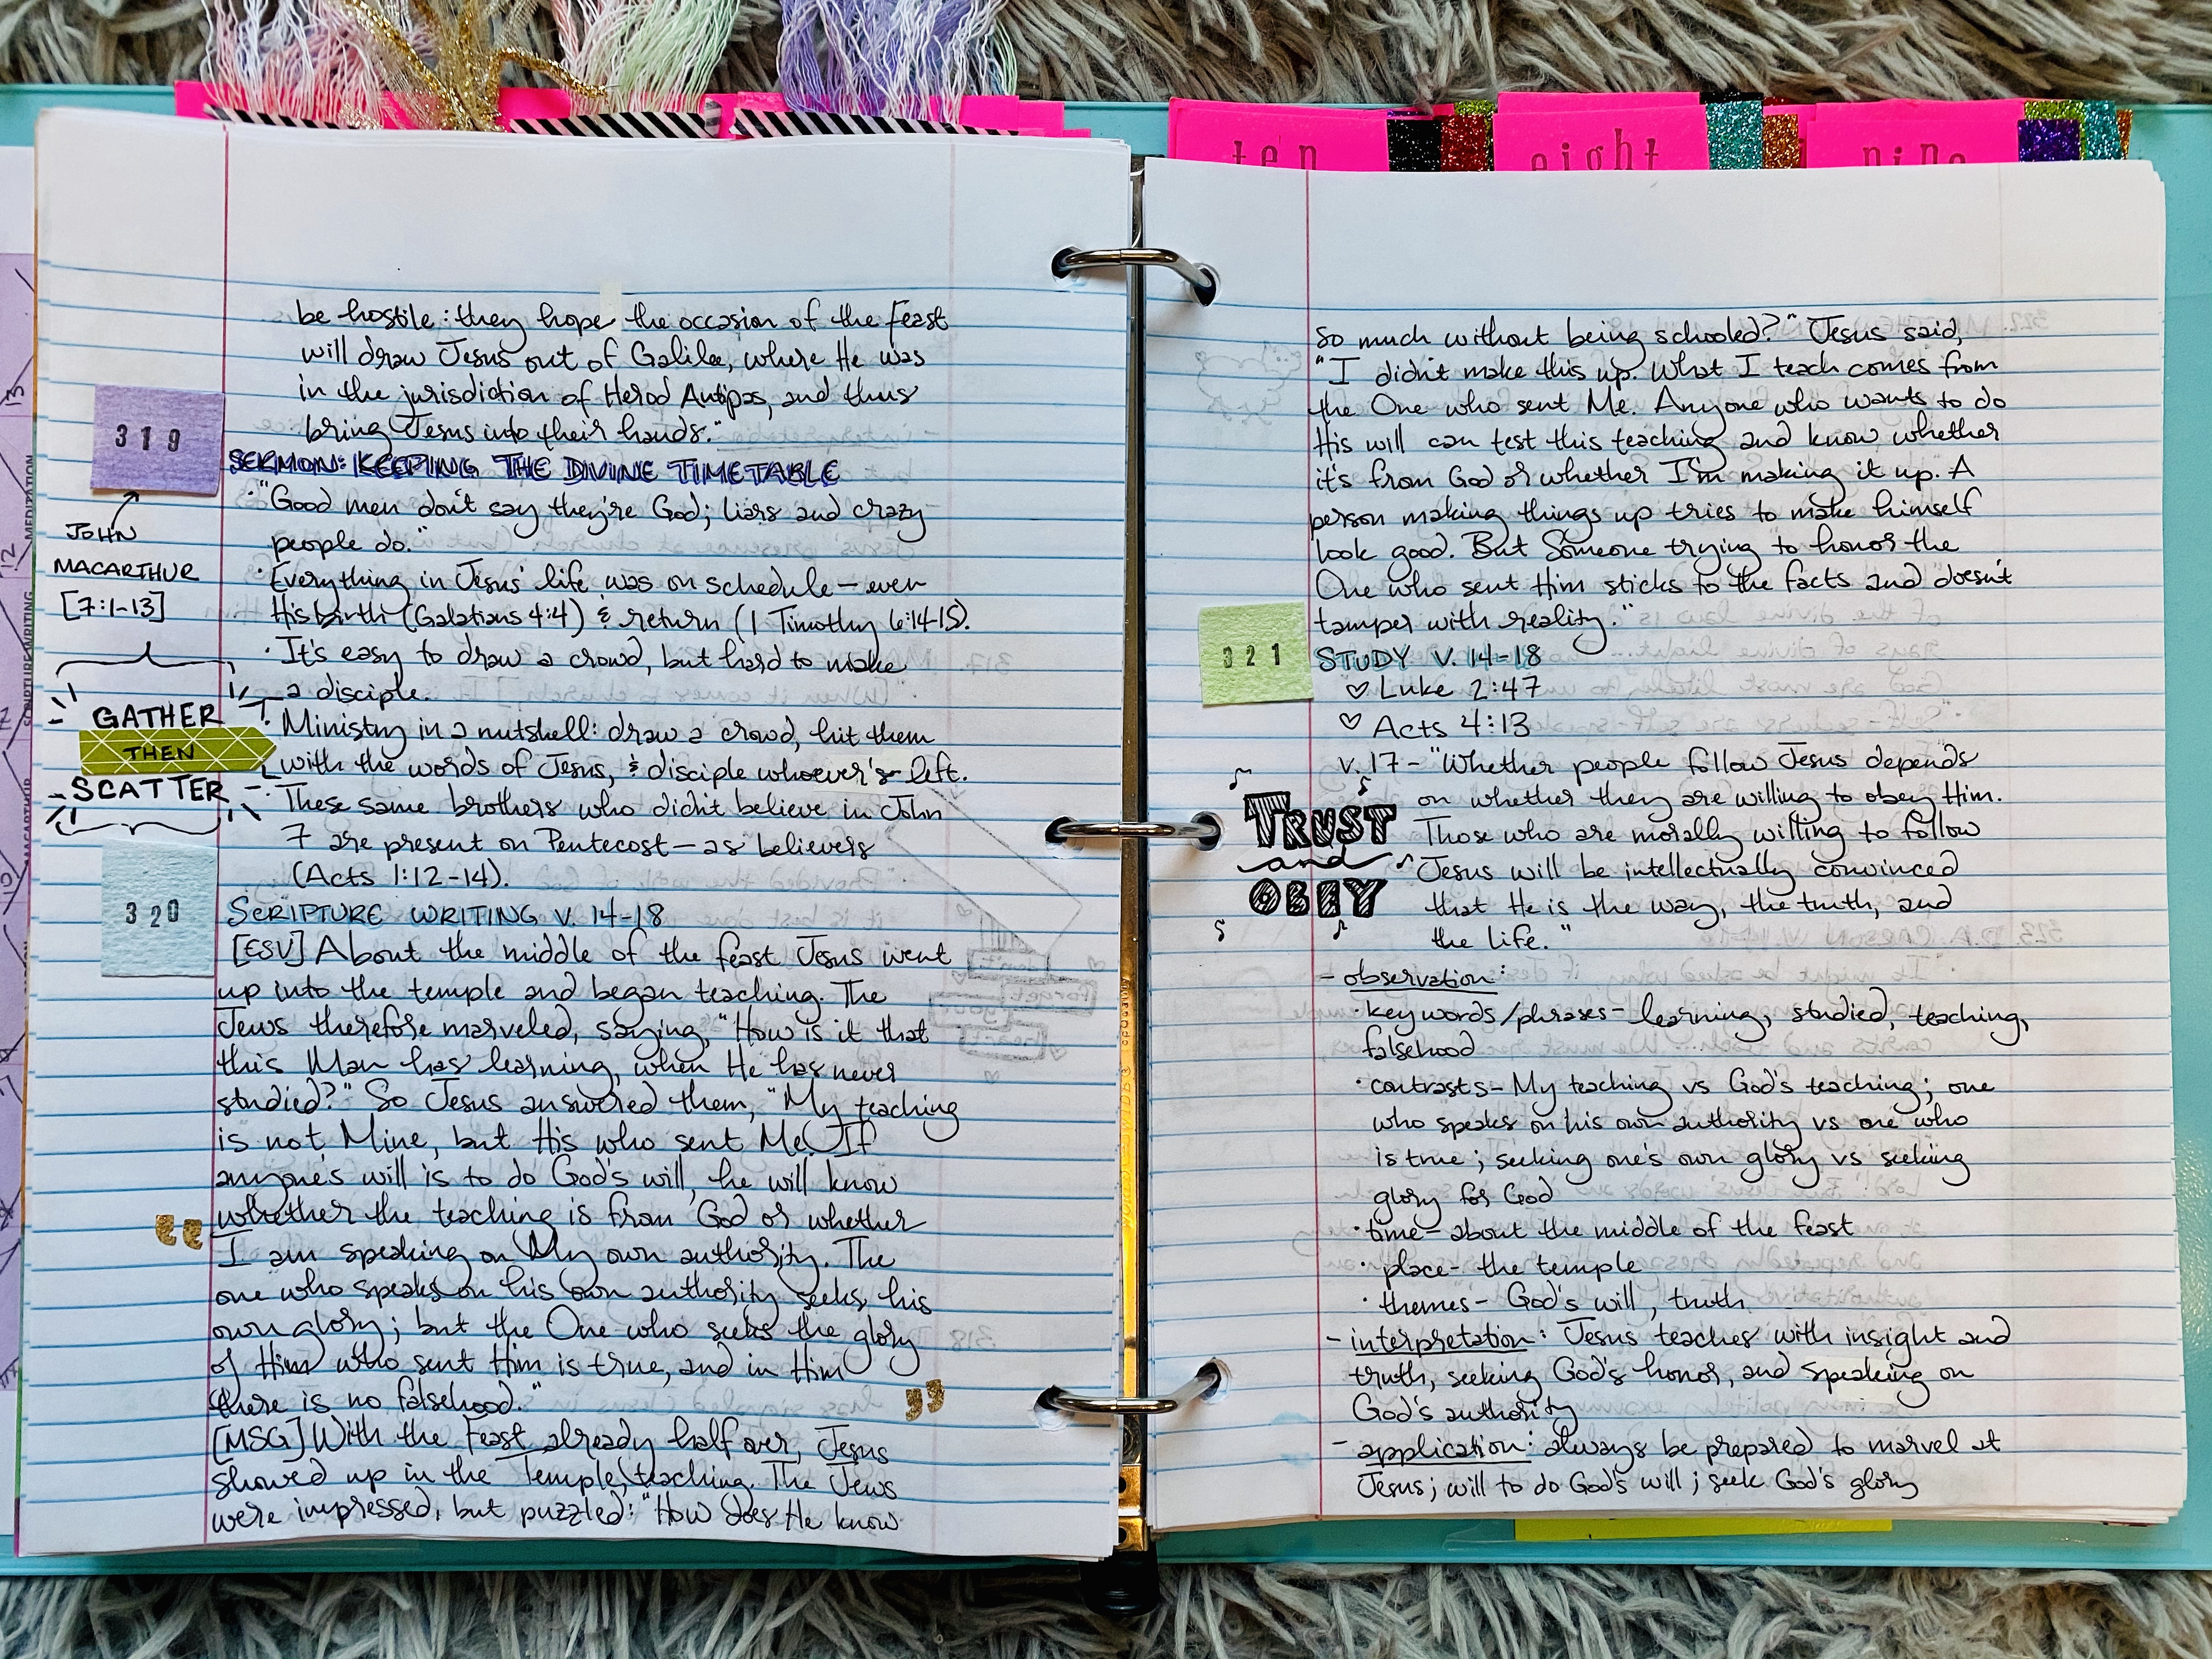 ten
eight
nine
be hostile: they hope the occasion of the feast
will draw Jesus out of Galilee, where He was
in the jurisdiction of Herod Antipas, and thus
bring Jesus into their hands."
319
JOHN
MACARTHUR
[7:1-13]
SERMON: KEEPING THE DIVINE TIMETABLE
· "Good men don't say they're God; liars and crazy
people do."
· Everything in Jesus' life was on schedule — even
His birth (Galatians 4:4) & return (1 Timothy 6:14-15).
· It's easy to draw a crowd, but hard to make
a disciple.
GATHER
THEN
SCATTER
· Ministry in a nutshell: draw a crowd, hit them
with the words of Jesus, & disciple whoever's left.
· These same brothers who didn't believe in John
7 are present on Pentecost — as believers
(Acts 1:12-14).
320
SCRIPTURE WRITING V. 14-18
[ESV] About the middle of the feast Jesus went
up into the temple and began teaching. The
Jews therefore marveled, saying, "How is it that
this Man has learning, when He has never
studied?" So Jesus answered them, "My teaching
is not Mine, but His who sent Me. If
anyone's will is to do God's will, he will know
whether the teaching is from God or whether
I am speaking on My own authority. The
one who speaks on his own authority seeks his
own glory; but the One who seeks the glory
of Him who sent Him is true, and in Him
there is no falsehood."
[MSG] With the Feast already half over, Jesus
showed up in the Temple, teaching. The Jews
were impressed, but puzzled: "How does He know
so much without being schooled?" Jesus said,
"I didn't make this up. What I teach comes from
the One who sent Me. Anyone who wants to do
His will can test this teaching and know whether
it's from God or whether I'm making it up. A
person making things up tries to make himself
look good. But Someone trying to honor the
One who sent Him sticks to the facts and doesn't
tamper with reality."
321
STUDY V. 14-18
♡ Luke 2:47
♡ Acts 4:13
v. 17 - "Whether people follow Jesus depends
on whether they are willing to obey Him.
Those who are morally willing to follow
Jesus will be intellectually convinced
that He is the way, the truth, and
the life."
TRUST
and
OBEY
- observation:
· key words/phrases - learning, studied, teaching,
falsehood
· contrasts - My teaching vs God's teaching; one
who speaks on his own authority vs one who
is true; seeking one's own glory vs seeking
glory for God
· time - about the middle of the feast
· place - the temple
· themes - God's will, truth
- interpretation: Jesus teaches with insight and
truth, seeking God's honor, and speaking on
God's authority
- application: always be prepared to marvel at
Jesus; will to do God's will; seek God's glory